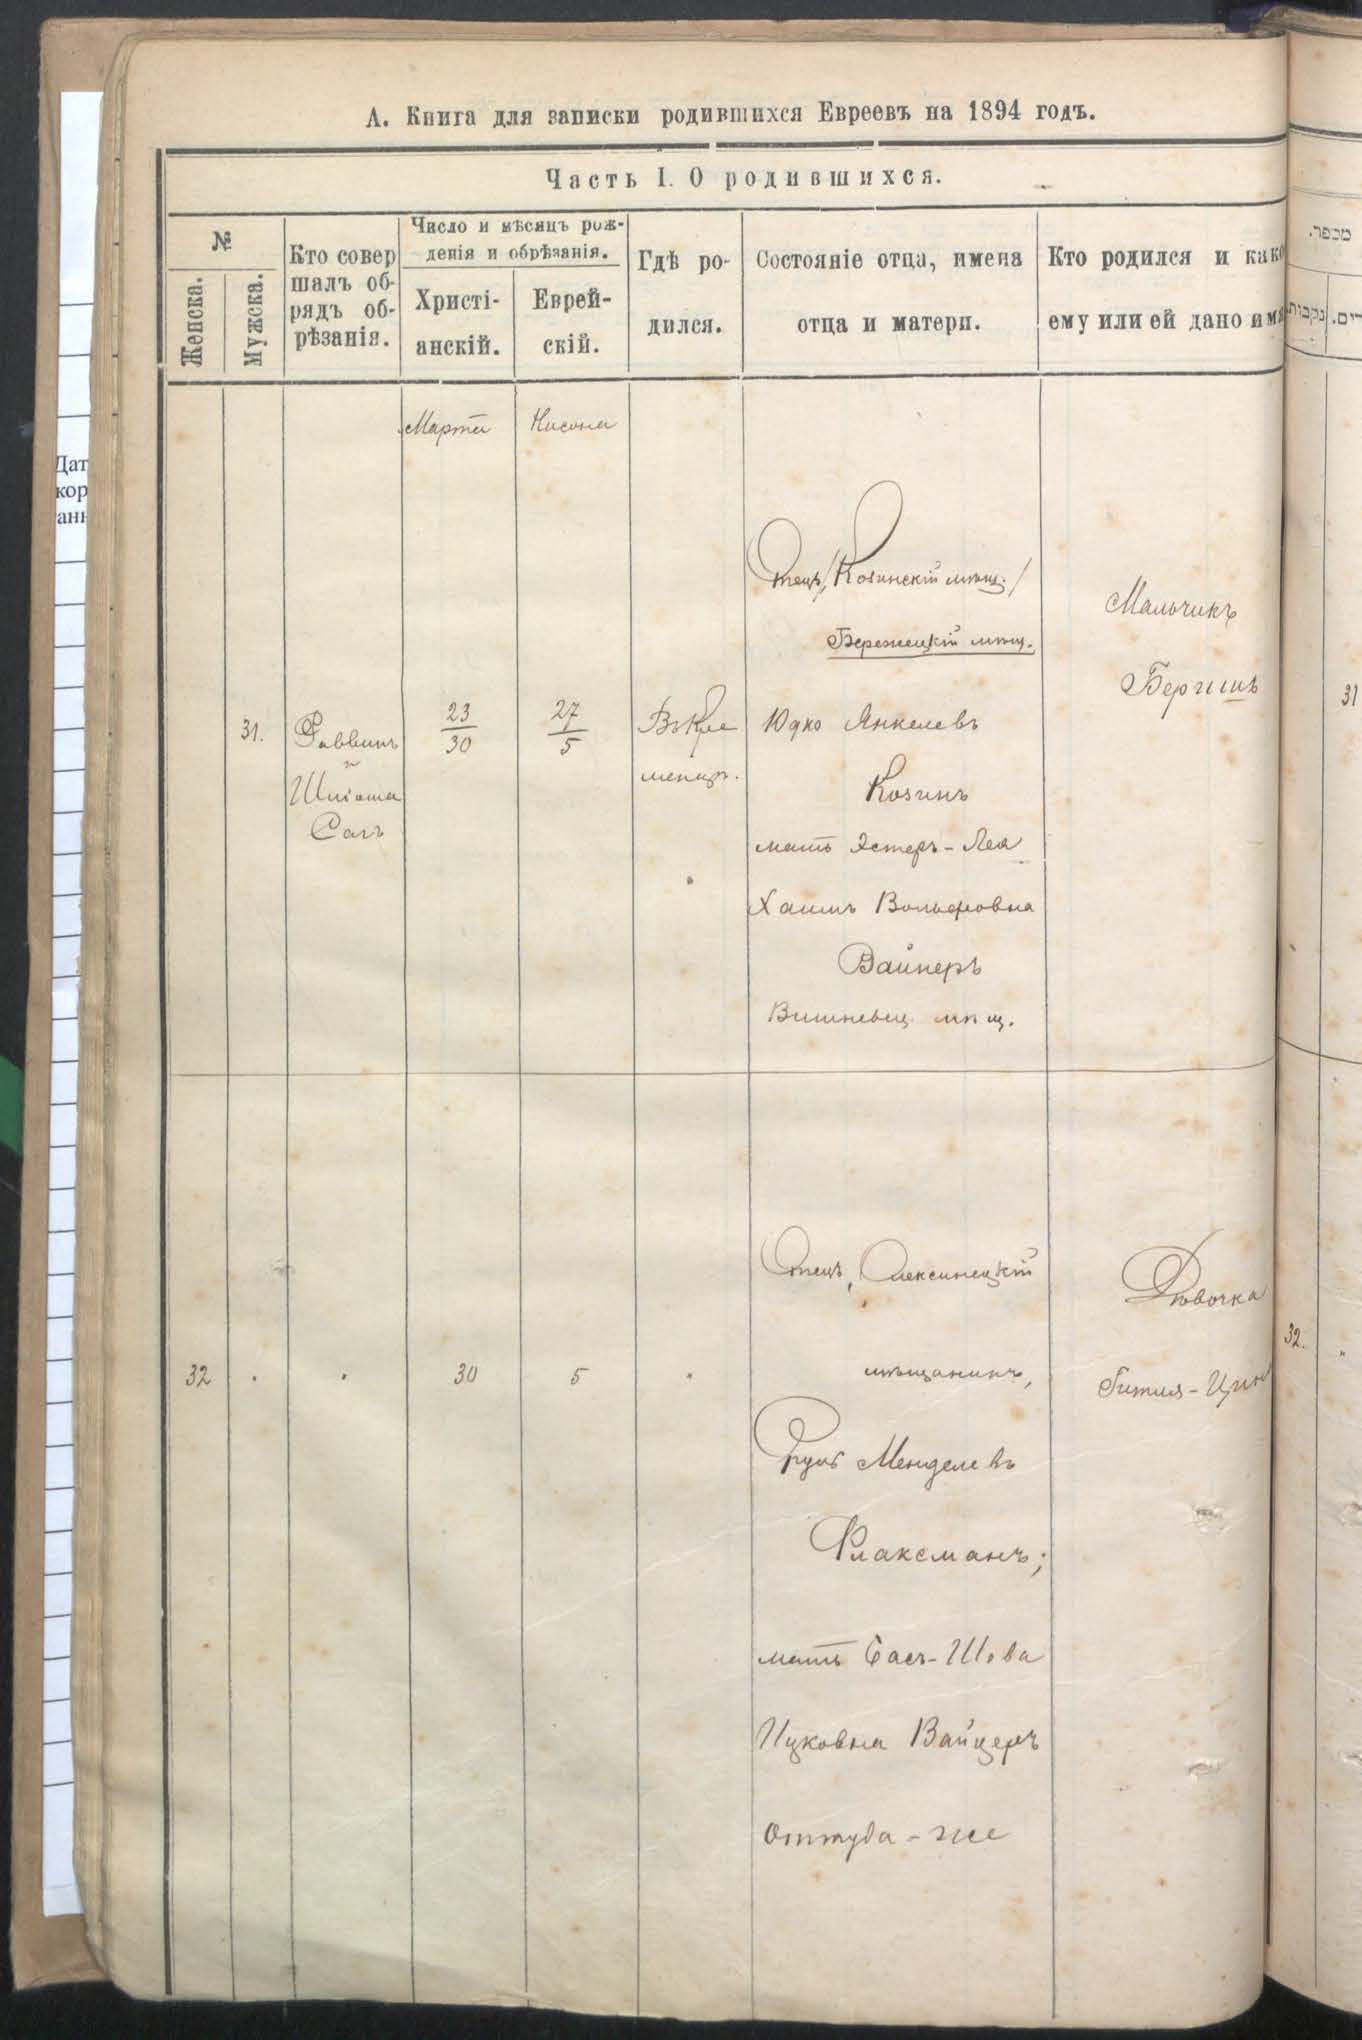 А. Книга для записки родившихся Евреевъ на 1894 годъ.
Часть I. О родившихся.
№
Женска.
Мужска.
Кто совер
шалъ об-
рядъ об-
рѣзанія.
Число и мѣсяцъ рож-
денія и обрѣзанія.
Христі-
анскій.
Еврей-
скій.
Гдѣ ро-
дился.
Состояніе отца, имена
отца и матери.
Кто родился и како
ему или ей дано имя
Марта
Нисона
31.
Раввинъ
и
Сагъ
23
30
27
5
Въ Кре
менцѣ.
Отецъ, /Козинскій мѣщ./
Бережецкій мѣщ.
Юдко Янкелевъ
Козинъ
мать Эстеръ-Лея
Хаимъ Вольфовна
Вайнеръ
Вишневец. мѣщ.
Мальчикъ
Беришъ
32
30
5
Отецъ, Олексинецкій
мѣщанинъ,
Менделевъ
Флаксманъ;
мать Бася-Шева
Ицковна Вайцеръ
оттуда-же
Дѣвочка
Гитля-
מספר.
נקבות
רים.
31
32.
Дат
кор
анн